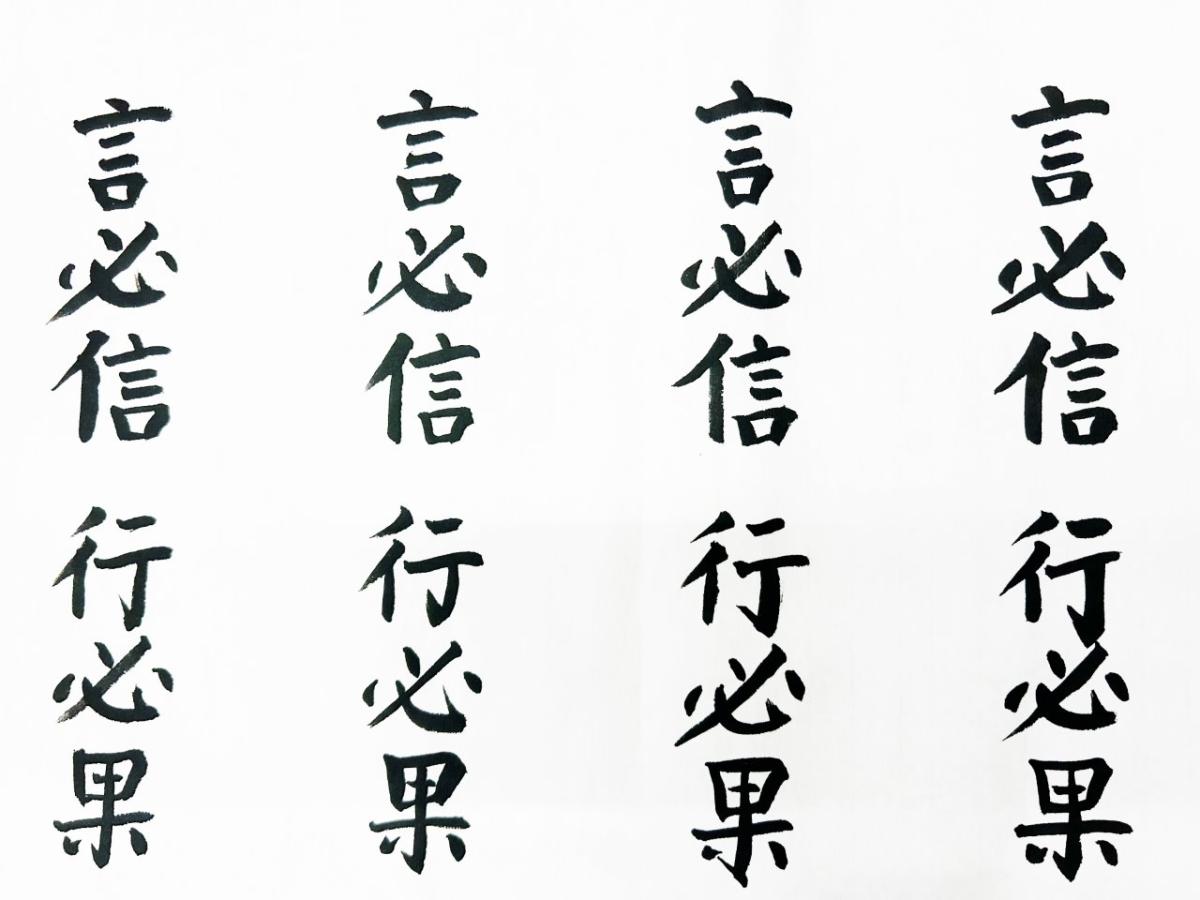 言必信
行必果
言必信
行必果
言必信
行必果
言必信
行必果